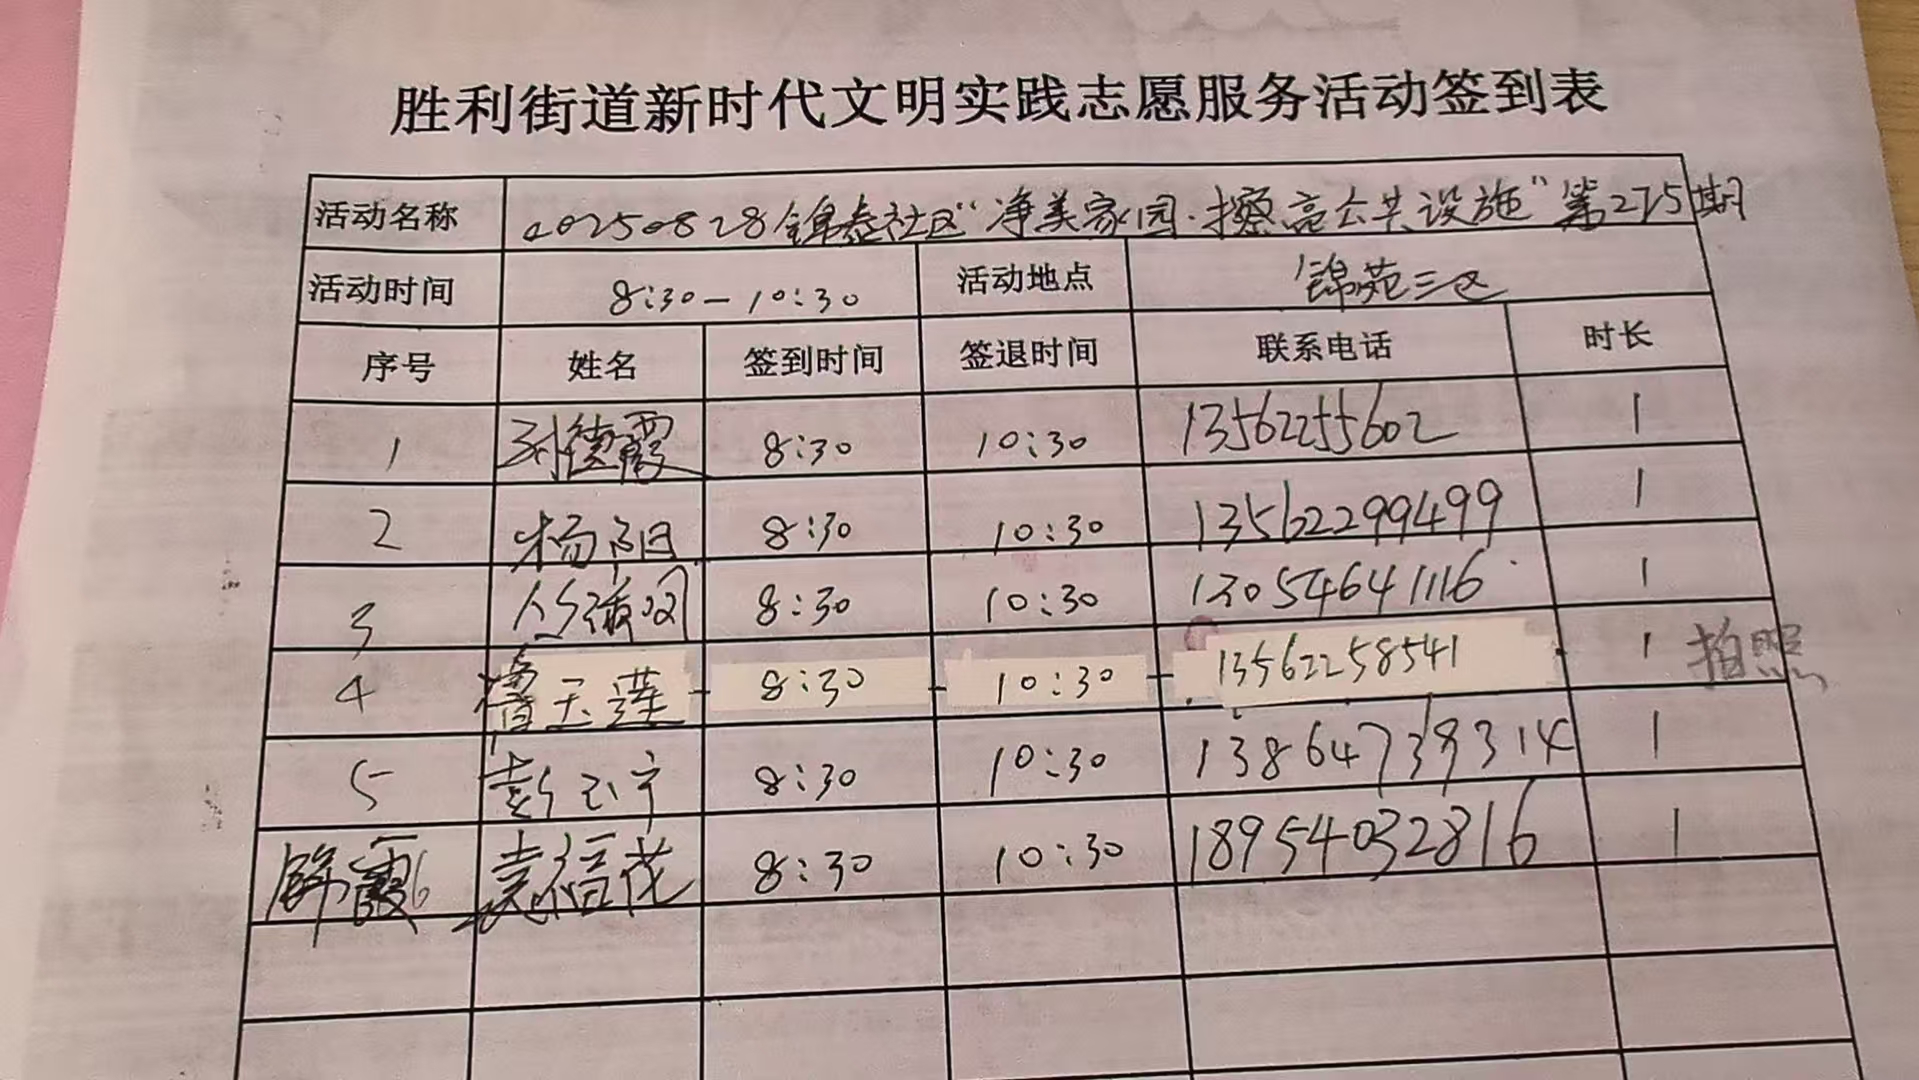 胜利街道新时代文明实践志愿服务活动签到表
活动名称 20250828锦泰社区“净美家园·擦亮公共设施”第275期
活动时间 8:30-10:30 活动地点 锦苑三区
序号 姓名 签到时间 签退时间 联系电话 时长
1 刘德霞 8:30 10:30 13562255602 1
2 杨阳 8:30 10:30 13562299499 1
3 8:30 10:30 13054641116 1
4 8:30 10:30 13562258541 1 拍照
5 彭玉宁 8:30 10:30 13864739314 1
薛霞 6 袁福茂 8:30 10:30 18954032816 1